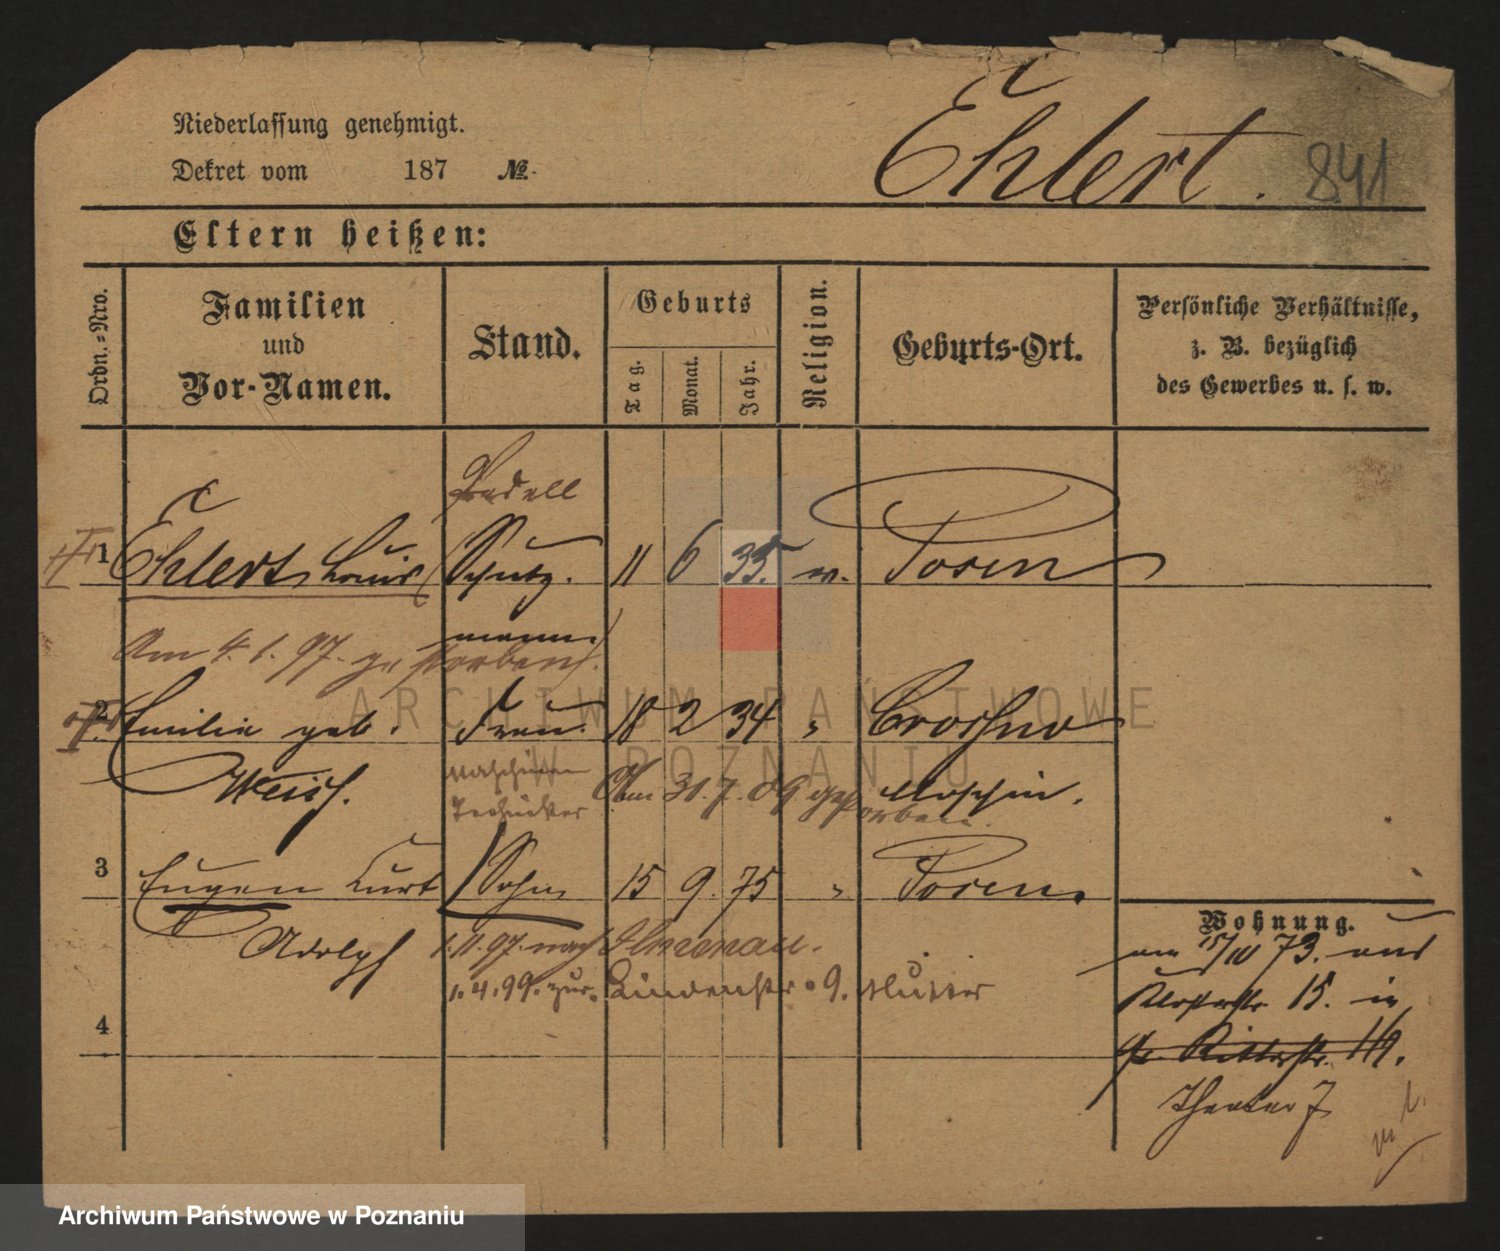 Niederlassung genehmigt.
Dekret vom 187 №.
Ehlert. 841
Eltern heißen:
Ordn.=Nro.
Familien
und
Vor-Namen.
Stand.
Geburts
Tag.
Monat.
Jahr.
Religion.
Geburts-Ort.
Persönliche Verhältnisse,
z. B. bezüglich
des Gewerbes u. s. w.
Pedell
1 Ehlert, Louis (Schutz- 11 6 35. ev. Posen
mann)
Am 4.1.97. gestorben.
2 Emilie geb. Frau 18 2 34 " Croschno
Weiss. Moschin.
Maschinen
Techniker
Am 31.7.09 gestorben.
3 Eugen Curt Sohn 15 9. 75 " Posen.
Adolph 1.11.97. nach Ilmenau.
1.4.99. zur. Lindenstr. 9. Mutter
4
Wohnung.
am 15/10 73. aus
Klosterstr. 15. in
gr. Ritterstr.
Theater 7
ARCHIWUM PAŃSTWOWE
W POZNANIU
Archiwum Państwowe w Poznaniu